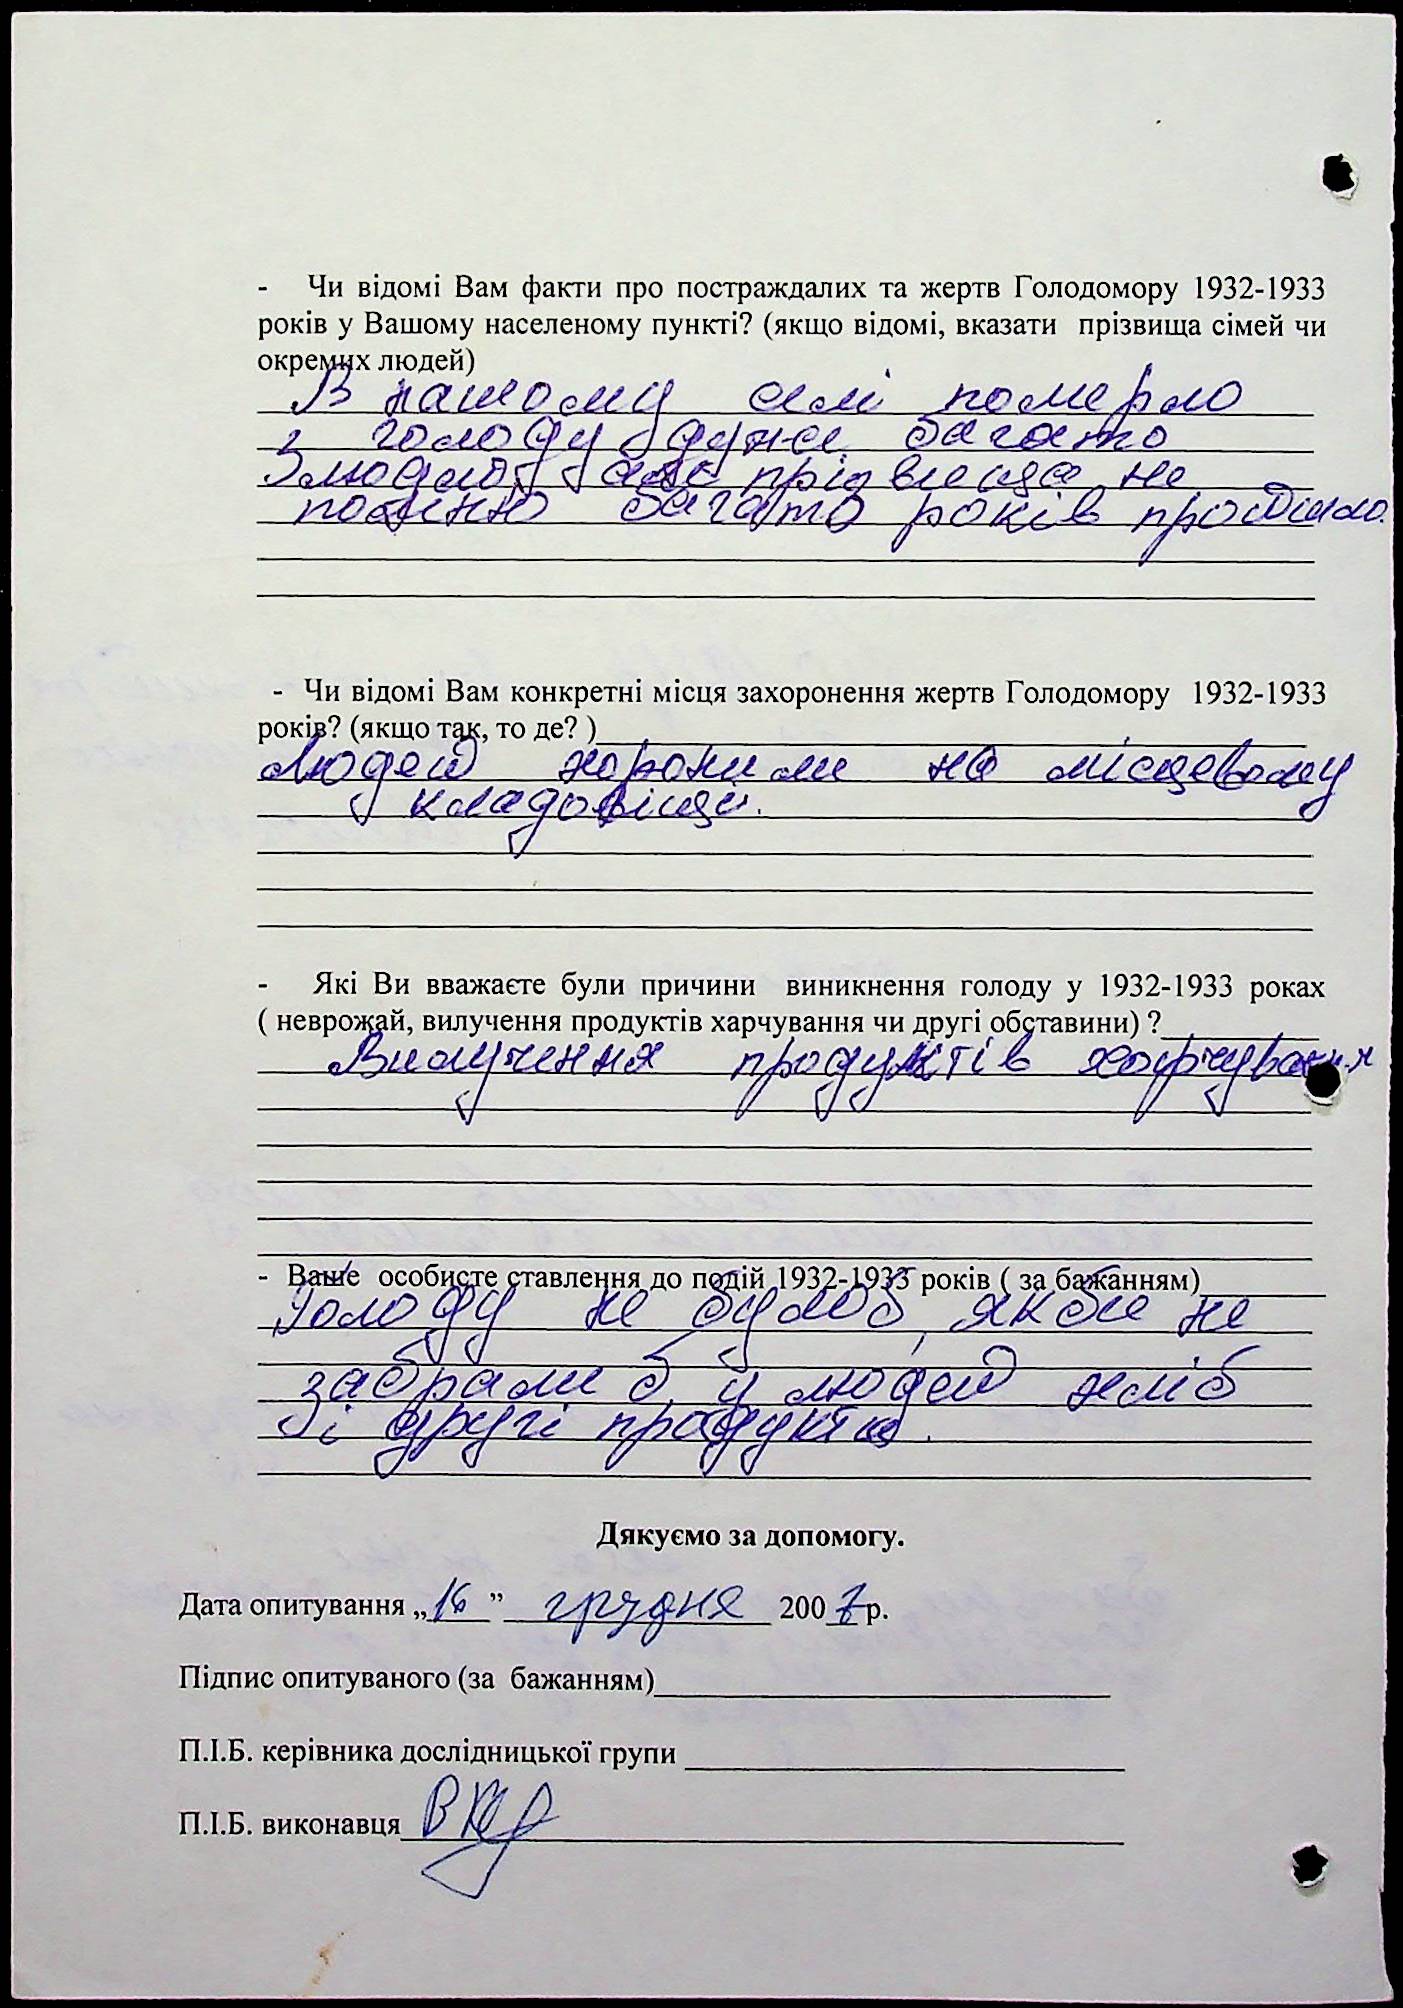 - Чи відомі Вам факти про постраждалих та жертв Голодомору 1932-1933
років у Вашому населеному пункті? (якщо відомі, вказати прізвища сімей чи
окремих людей)
В нашому селі померло
з голоду дуже багато
людей, але прізвища не
помню багато років пройшло.
- Чи відомі Вам конкретні місця захоронення жертв Голодомору 1932-1933
років? (якщо так, то де? )
Людей хоронили на місцевому
кладовіщі.
- Які Ви вважаєте були причини виникнення голоду у 1932-1933 роках
( неврожай, вилучення продуктів харчування чи другі обставини) ?
Вилучення продуктів харчування
- Ваше особисте ставлення до подій 1932-1933 років ( за бажанням)
Голоду не булоб, якби не
забрали б у людей хліб
і другі продукти.
Дякуємо за допомогу.
Дата опитування „16” грудня 2007 р.
Підпис опитуваного (за бажанням)
П.І.Б. керівника дослідницької групи
П.І.Б. виконавця